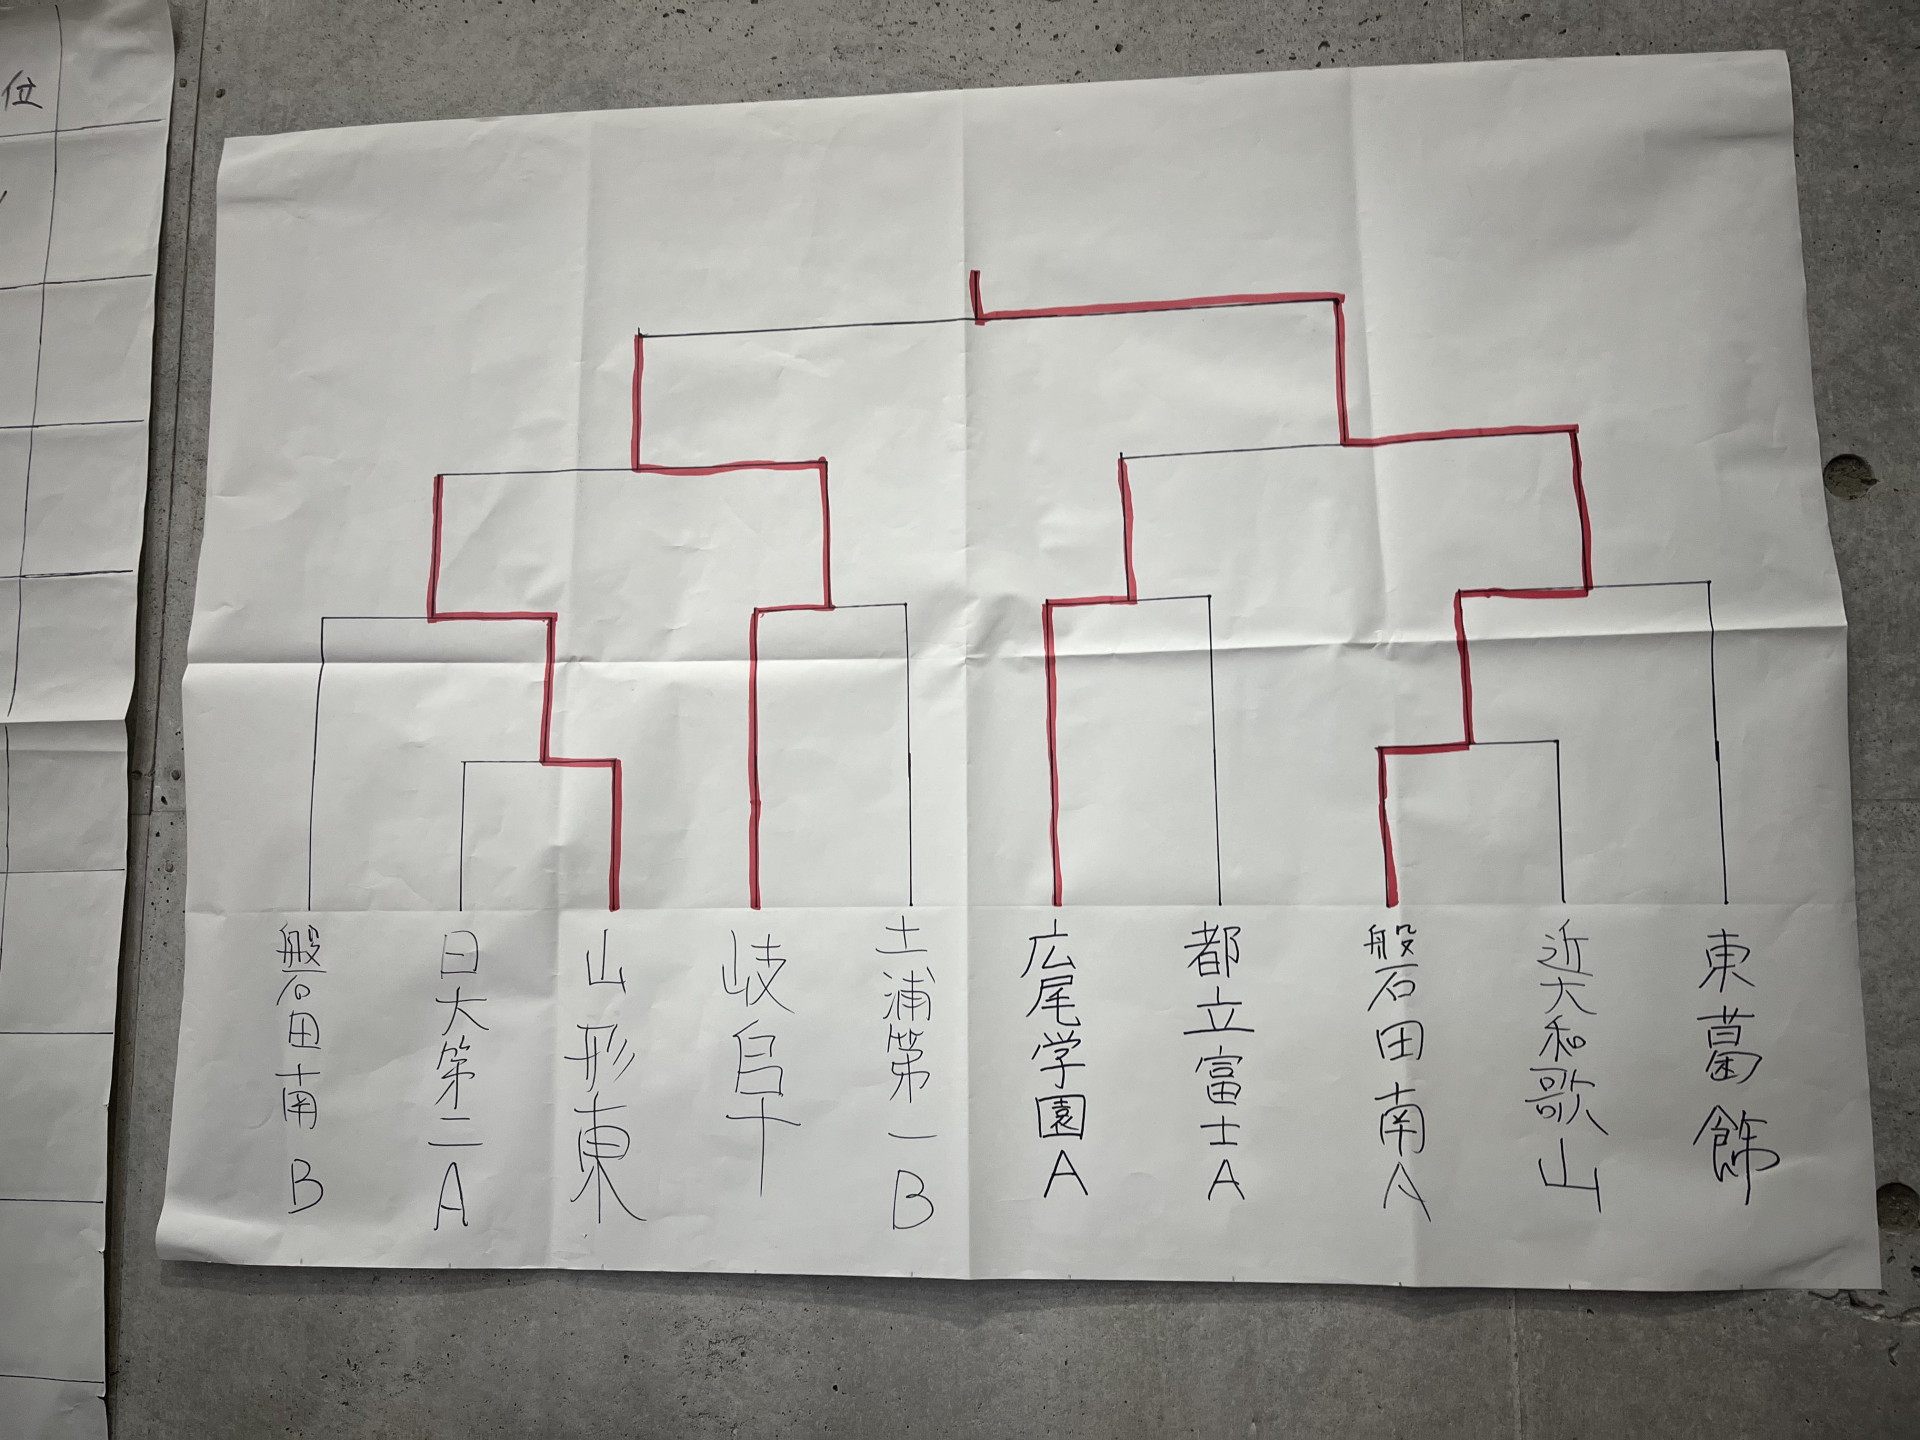 位
盤田南B
日大第二A
山形東
岐阜
土浦第一B
広尾学園A
都立富士A
盤田南A
近大和歌山
東葛飾